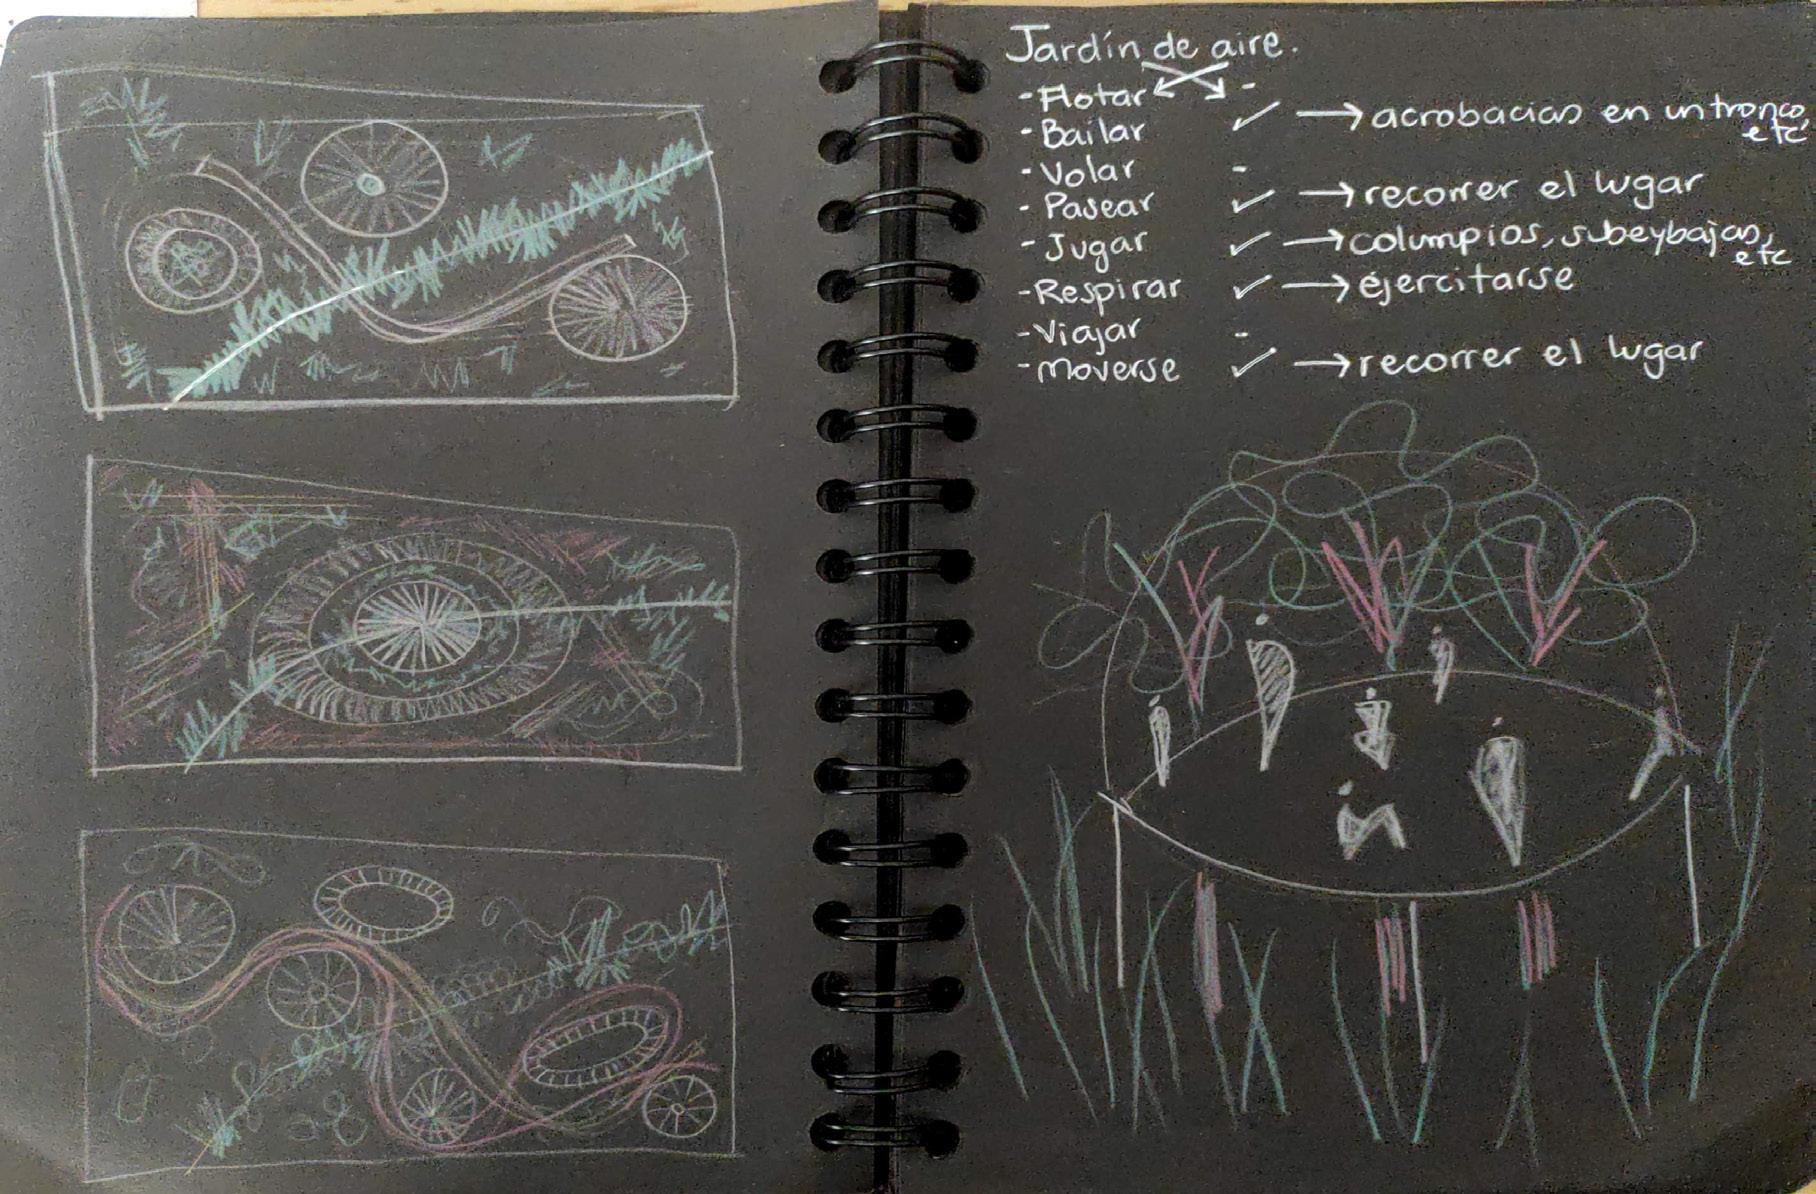 Jardín de aire.
- Flotar -
- Bailar ✓ → acrobacias en un tronco, etc
- Volar -
- Pasear ✓ → recorrer el lugar
- Jugar ✓ → columpios, subeybajas, etc
- Respirar ✓ → éjercitarse
- Viajar -
- Moverse ✓ → recorrer el lugar